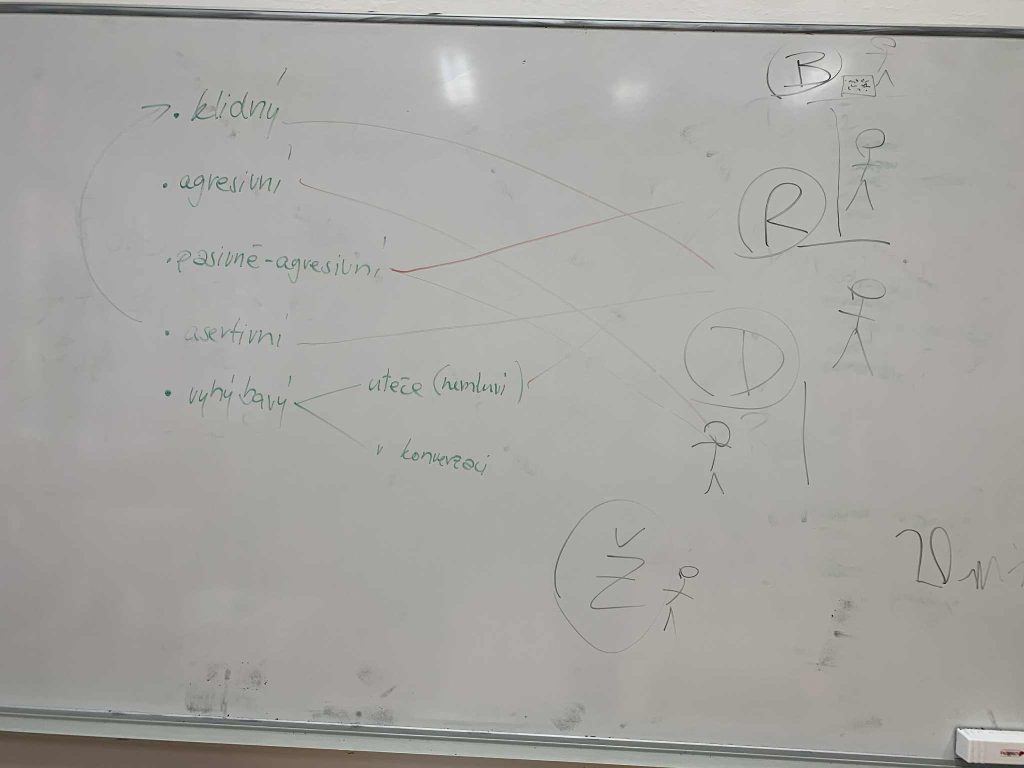 • klidný
• agresivní
• pasivně-agresivní
• asertivní
• vyhýbavý
uteče (nemluví)
v konverzaci
B
R
D
Ž
20 m